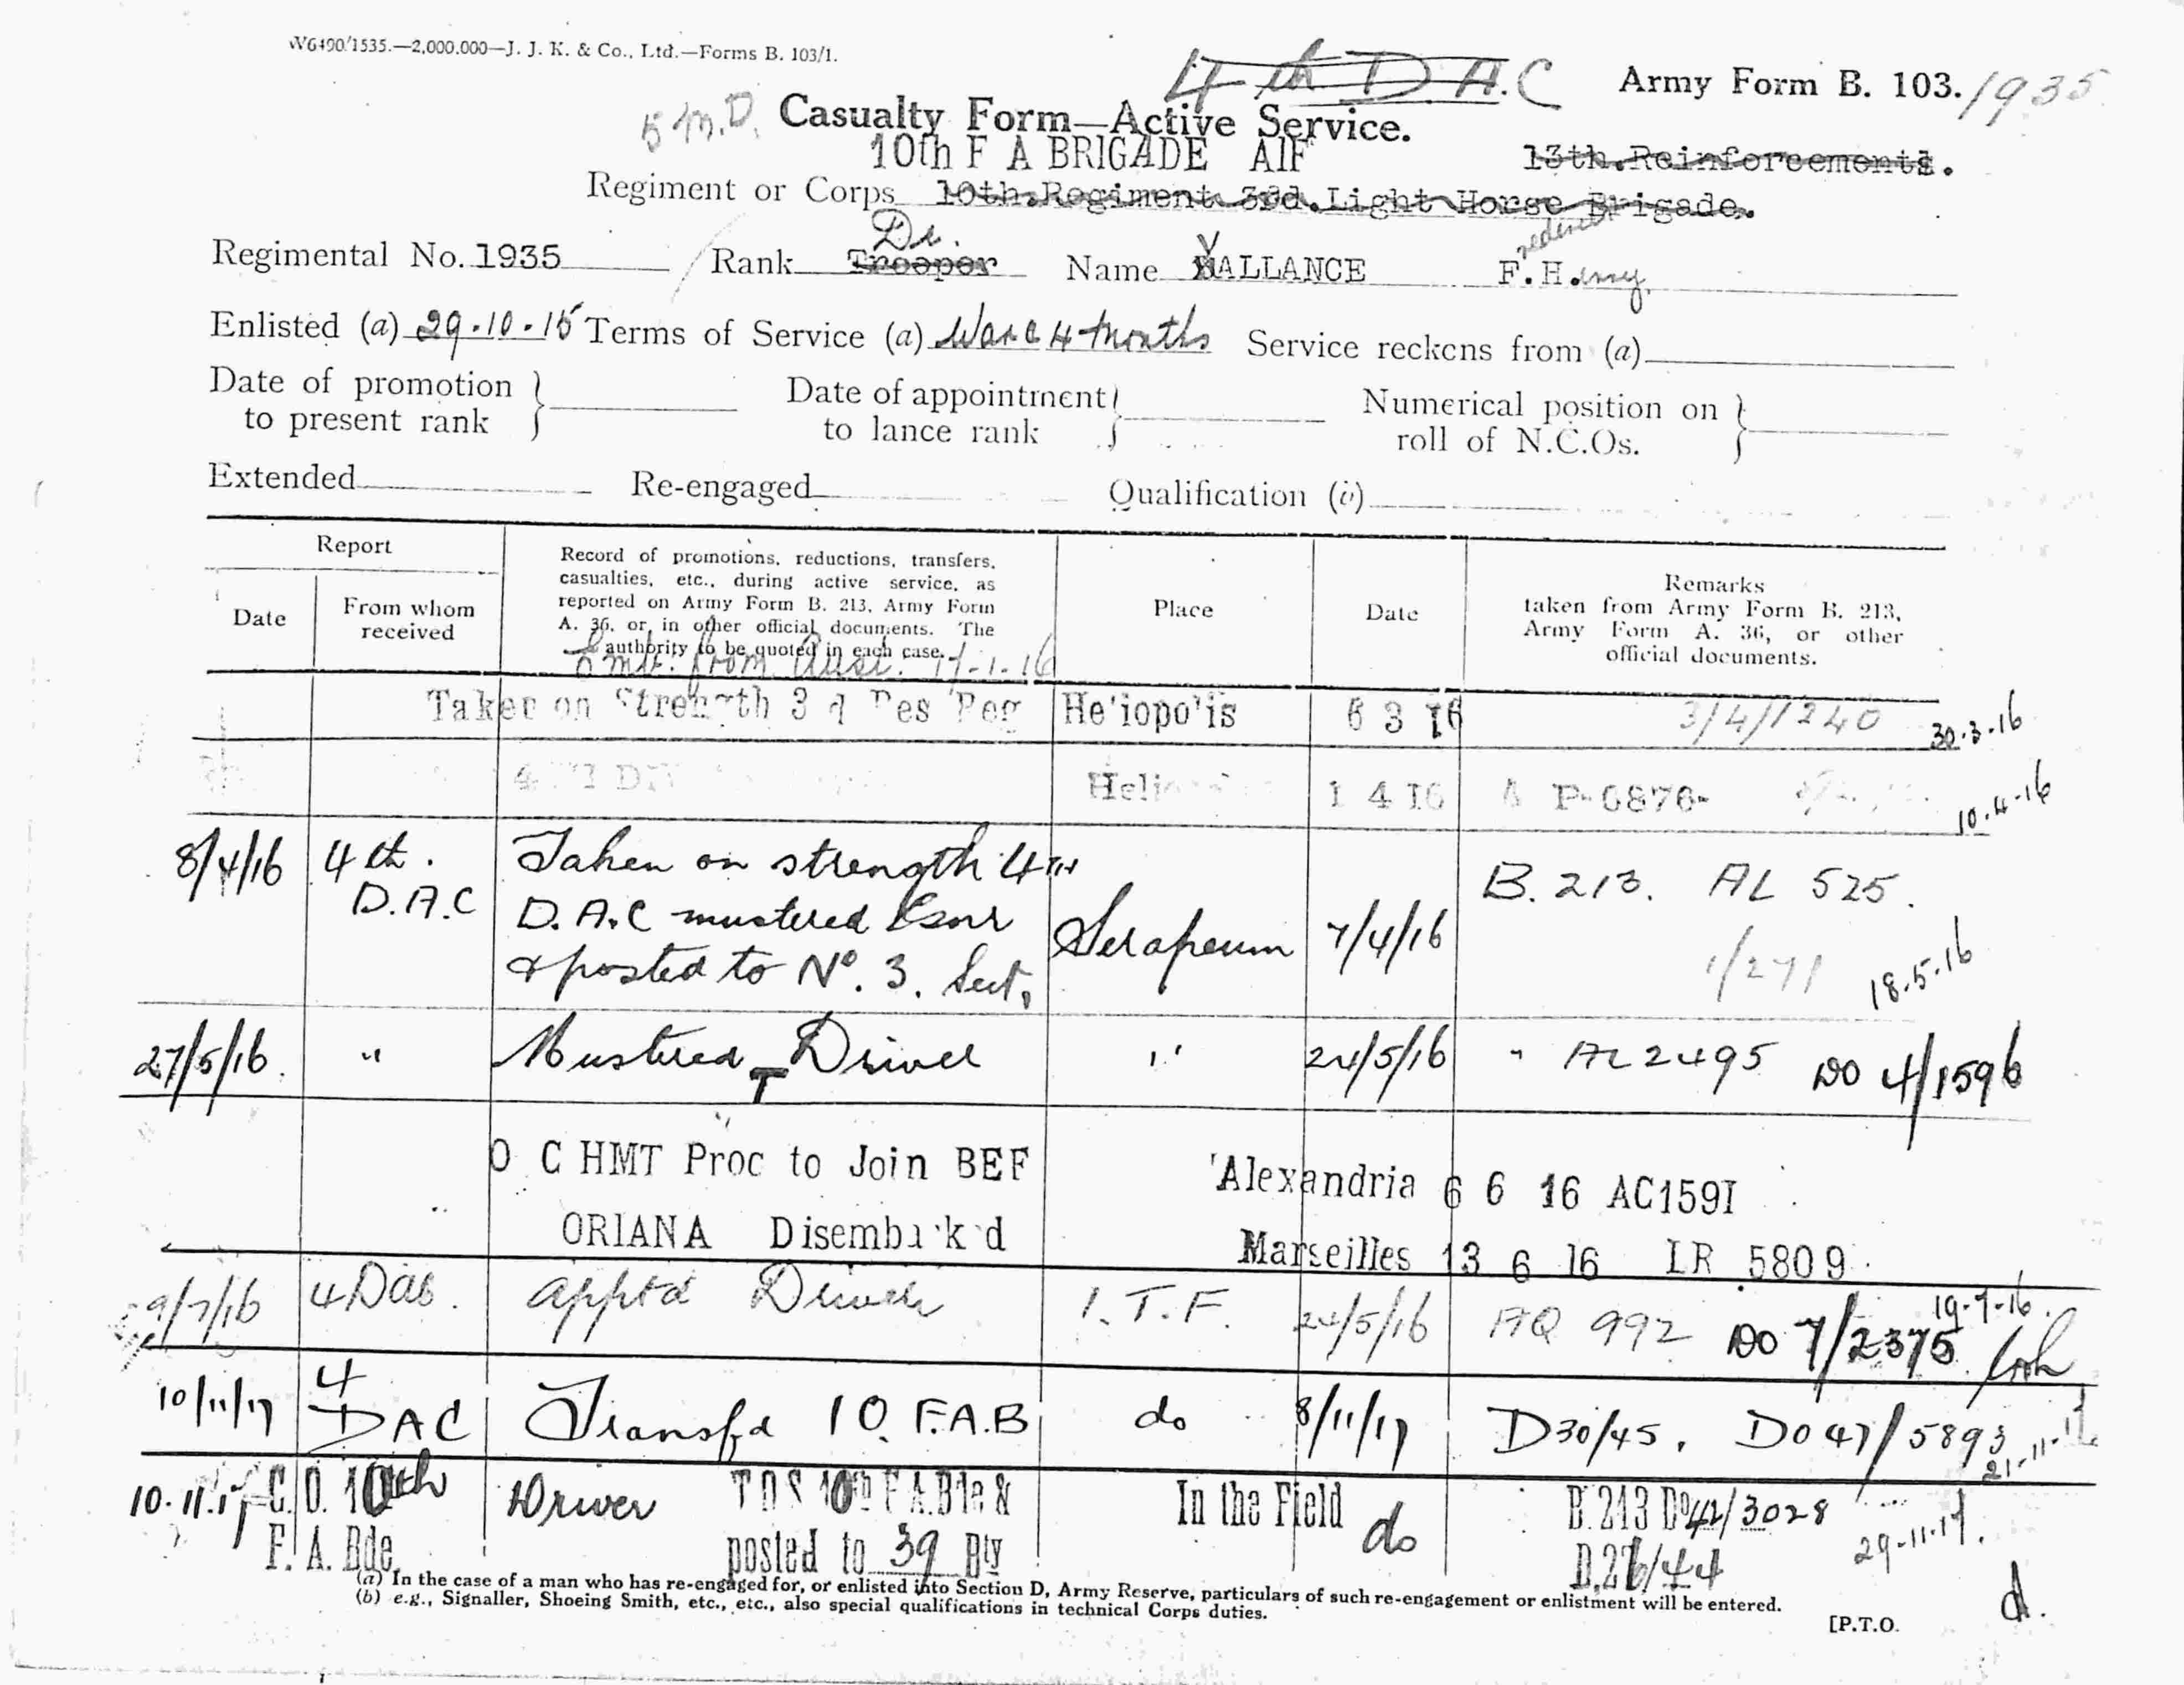 W6490/1535.—2,000.000—J. J. K. & Co., Ltd.—Forms B. 103/1.
4th D.A.C
Army Form B. 103. 1935
Casualty Form—Active Service.
10th F A BRIGADE AIF
13th.Reinforcements.
Regiment or Corps 10th.Regiment 3rd.Light Horse Brigade.
Dr.
Regimental No. 1935 Rank Trooper Name VALLANCE F.H.
Enlisted (a) 29.10.15 Terms of Service (a) War & 4 Months Service reckons from (a)
Date of promotion to present rank
Date of appointment to lance rank
Numerical position on roll of N.C.Os.
Extended Re-engaged Qualification (b)
Report
Date
From whom received
Record of promotions, reductions, transfers,
casualties, etc., during active service, as
reported on Army Form B. 213, Army Form
A. 36, or in other official documents. The
authority to be quoted in each case.
Place
Date
Remarks
taken from Army Form B. 213,
Army Form A. 36, or other
official documents.
Emb. from Aust. 17-1-16
Taken on Strength 3 d Res Reg Heliopolis 6 3 16 3/4/1240 30.3.16
1 4 16 10.4.16
8/4/16 4th. D.A.C Taken on strength 4th
D.A.C mustered
& posted to No. 3. Sect. Serapeum 7/4/16 B. 213. AL 525.
1/271 18.5.16
27/5/16 " Mustered Driver " 24/5/16 " AL2495 DO 4/1596
O C HMT Proc to Join BEF Alexandria 6 6 16 AC1591
ORIANA Disembark'd Marseilles 13 6 16 LR 5809
9/7/16 4 DAC. Apptd Driver I.T.F. 24/5/16 AQ 992 DO 7/2375 19-7-16.
10/11/17 4 DAC Transfd 10 F.A.B do 8/11/17 D30/45. DO 47/5893 21-11-17
10.11.17 C.O. 10th
F.A. Bde. Driver T O S 10th F.A.Bde &
posted to 39 Bty In the Field do B.213 DO 42/3028
D.26/44 29-11-17.
(a) In the case of a man who has re-engaged for, or enlisted into Section D, Army Reserve, particulars of such re-engagement or enlistment will be entered.
(b) e.g., Signaller, Shoeing Smith, etc., etc., also special qualifications in technical Corps duties.
[P.T.O.